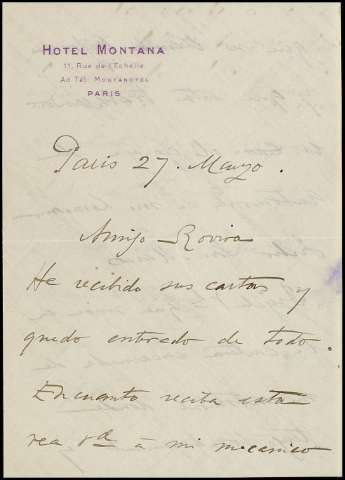 HOTEL MONTANA
11, Rue de l'Echelle
Ad. Tél: MONTANOTEL
PARIS
Paris 27. Marzo.
Amigo Rovira
He recibido sus cartas y
quedo enterado de todo.
En cuanto reciba esta
vea Vd à mi mecanico